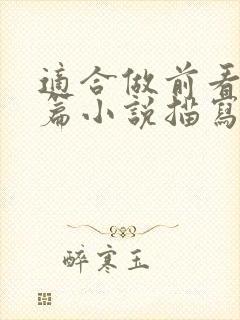 適合做前看
篇小說描寫
醉寒玉